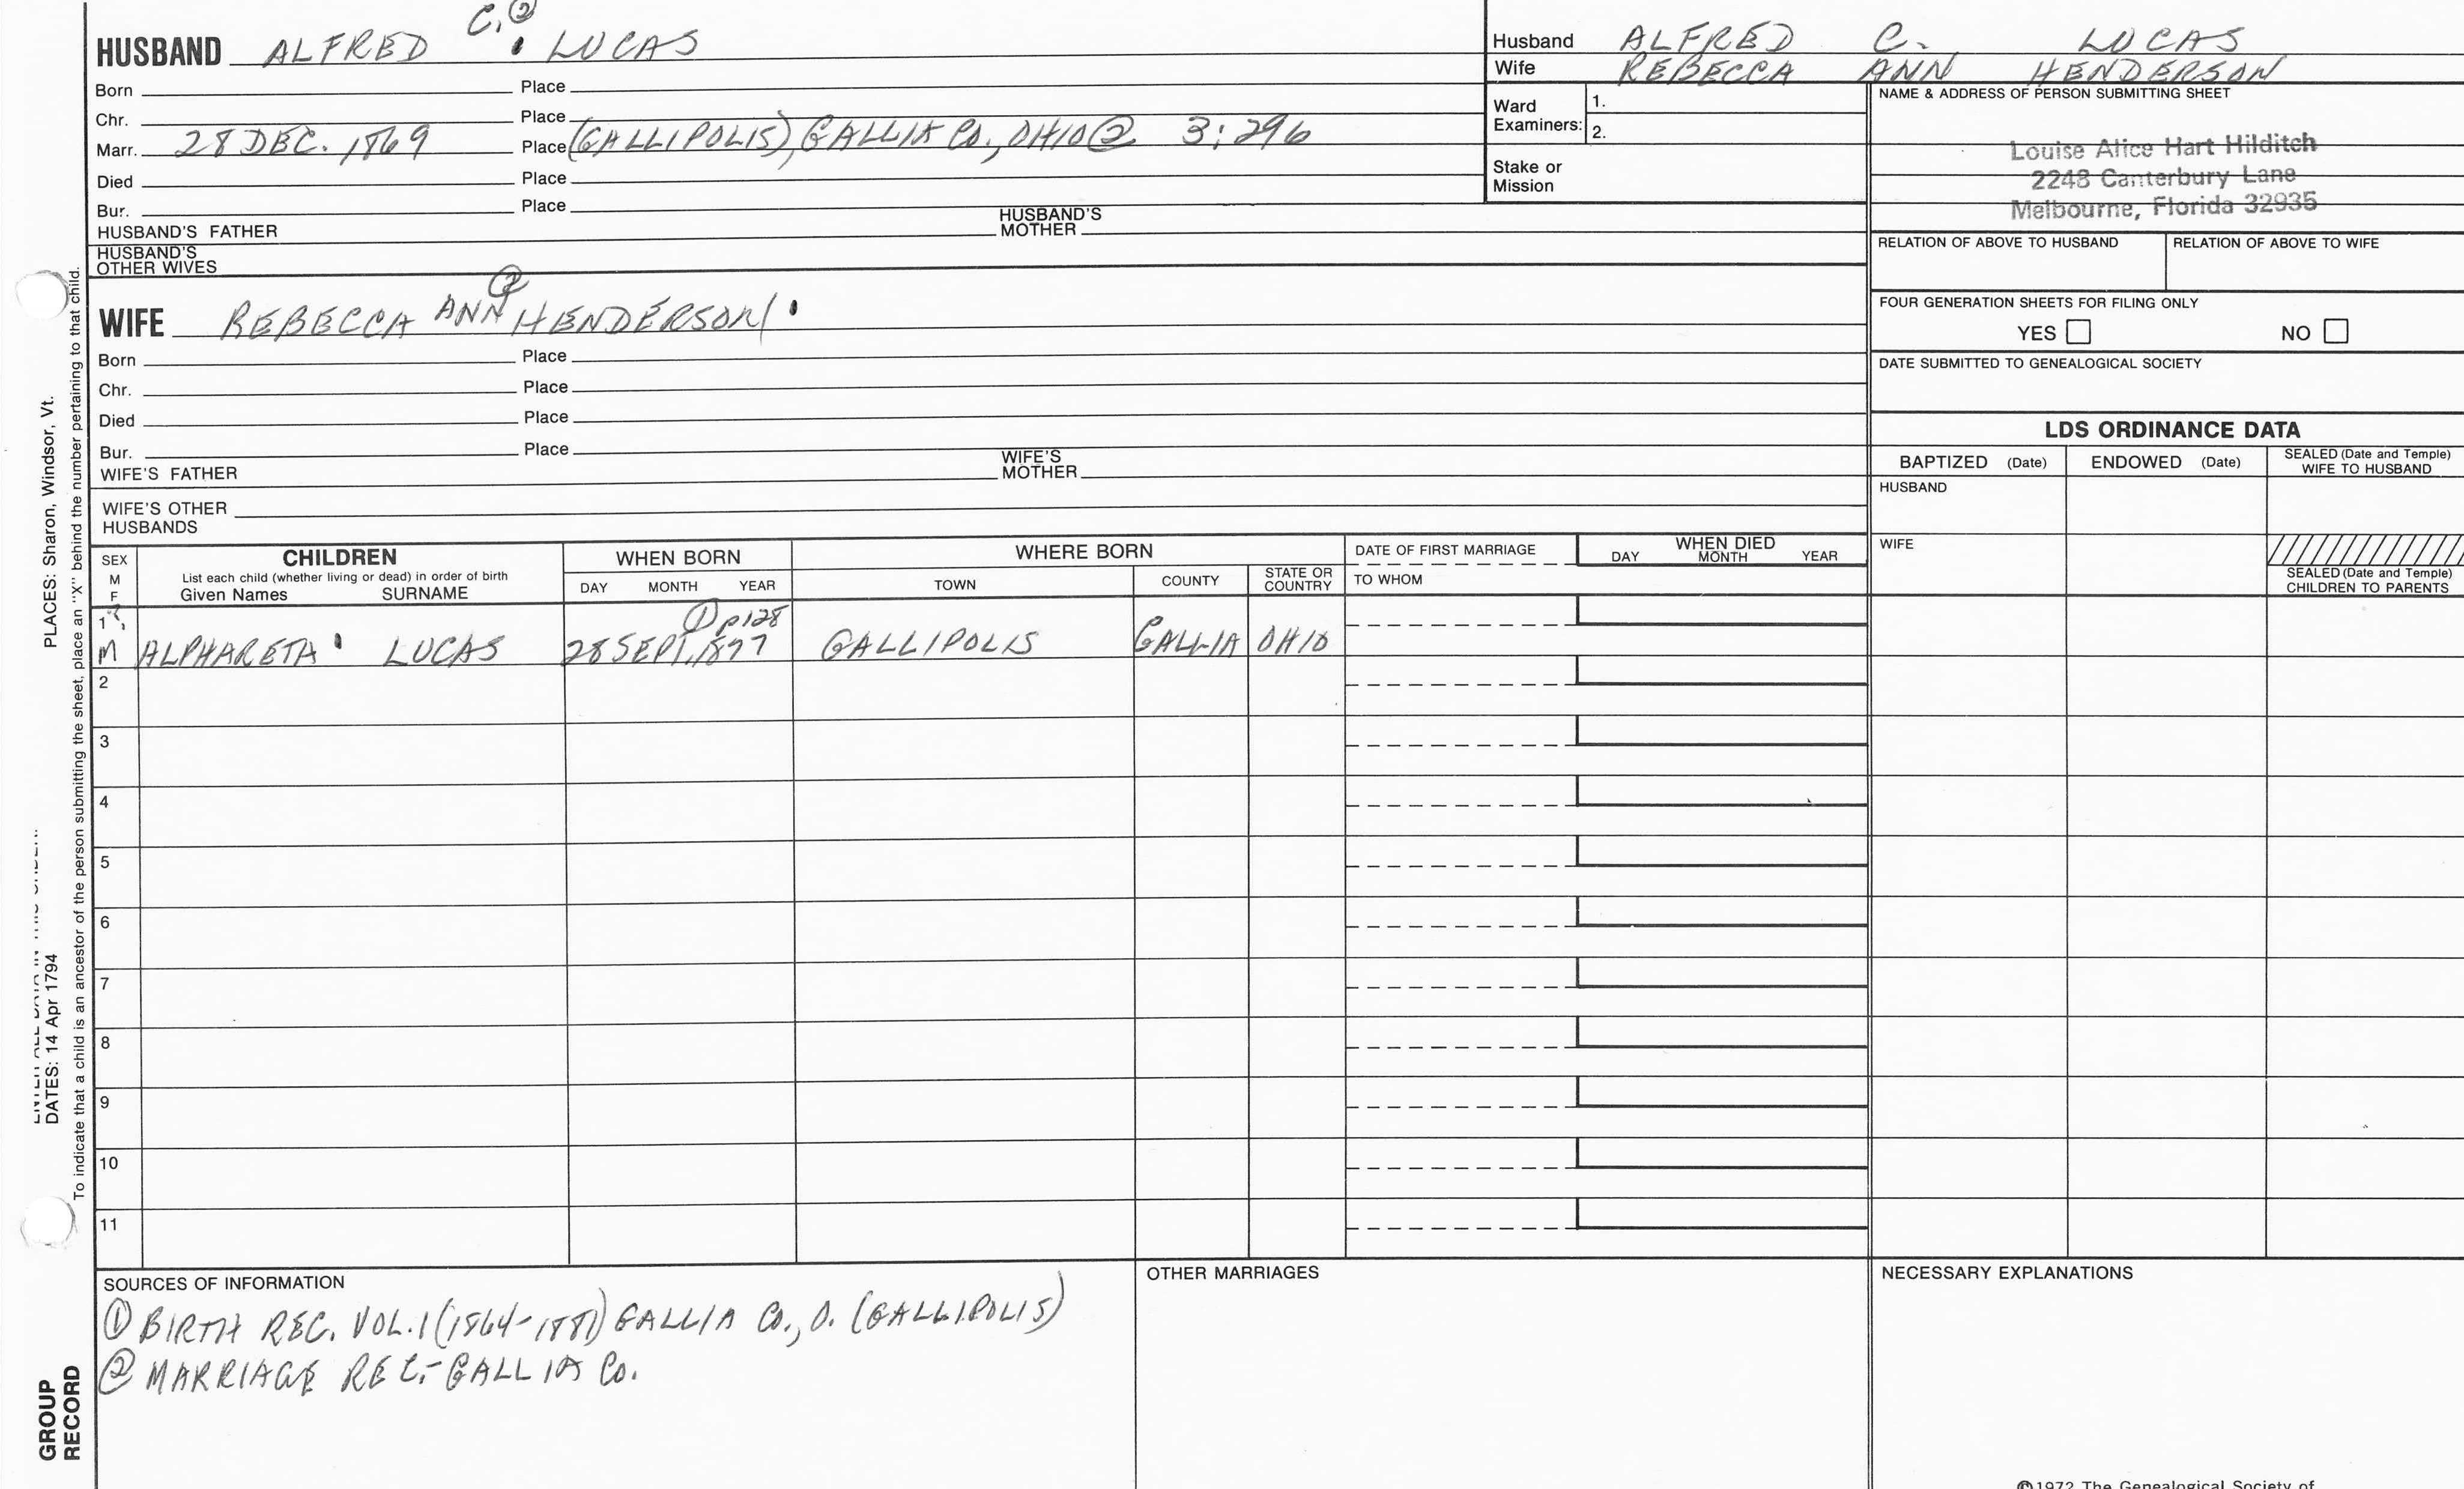 C. ②
HUSBAND ALFRED LUCAS
Born Place
Chr. Place
Marr. 28 DEC. 1869 Place (GALLIPOLIS), GALLIA CO., OHIO ② 3:296
Died Place
Bur. Place
HUSBAND'S FATHER HUSBAND'S MOTHER
HUSBAND'S
OTHER WIVES
WIFE REBECCA ANN ② HENDERSON
Born Place
Chr. Place
Died Place
Bur. Place
WIFE'S FATHER WIFE'S MOTHER
WIFE'S OTHER
HUSBANDS
Husband ALFRED C. LUCAS
Wife REBECCA ANN HENDERSON
Ward
Examiners: 1.
2.
Stake or
Mission
NAME & ADDRESS OF PERSON SUBMITTING SHEET
Louise Alice Hart Hilditch
2248 Canterbury Lane
Melbourne, Florida 32935
RELATION OF ABOVE TO HUSBAND RELATION OF ABOVE TO WIFE
FOUR GENERATION SHEETS FOR FILING ONLY
YES NO
DATE SUBMITTED TO GENEALOGICAL SOCIETY
LDS ORDINANCE DATA
BAPTIZED (Date) ENDOWED (Date) SEALED (Date and Temple)
WIFE TO HUSBAND
HUSBAND
WIFE
SEALED (Date and Temple)
CHILDREN TO PARENTS
SEX
M
F
CHILDREN
List each child (whether living or dead) in order of birth
Given Names SURNAME
WHEN BORN
DAY MONTH YEAR
WHERE BORN
TOWN COUNTY STATE OR
COUNTRY
DATE OF FIRST MARRIAGE
TO WHOM
WHEN DIED
DAY MONTH YEAR
1 ① p128
M ALPHARETA LUCAS 28 SEPT. 1877 GALLIPOLIS GALLIA OHIO
2
3
4
5
6
7
8
9
10
11
SOURCES OF INFORMATION
① BIRTH REC. VOL. 1 (1864-1881) GALLIA CO., O. (GALLIPOLIS)
② MARRIAGE REC.-GALLIA CO.
OTHER MARRIAGES
NECESSARY EXPLANATIONS
©1972 The Genealogical Society of
PLACES: Sharon, Windsor, Vt.
DATES: 14 Apr 1794
To indicate that a child is an ancestor of the person submitting the sheet, place an "X" behind the number pertaining to that child.
GROUP
RECORD